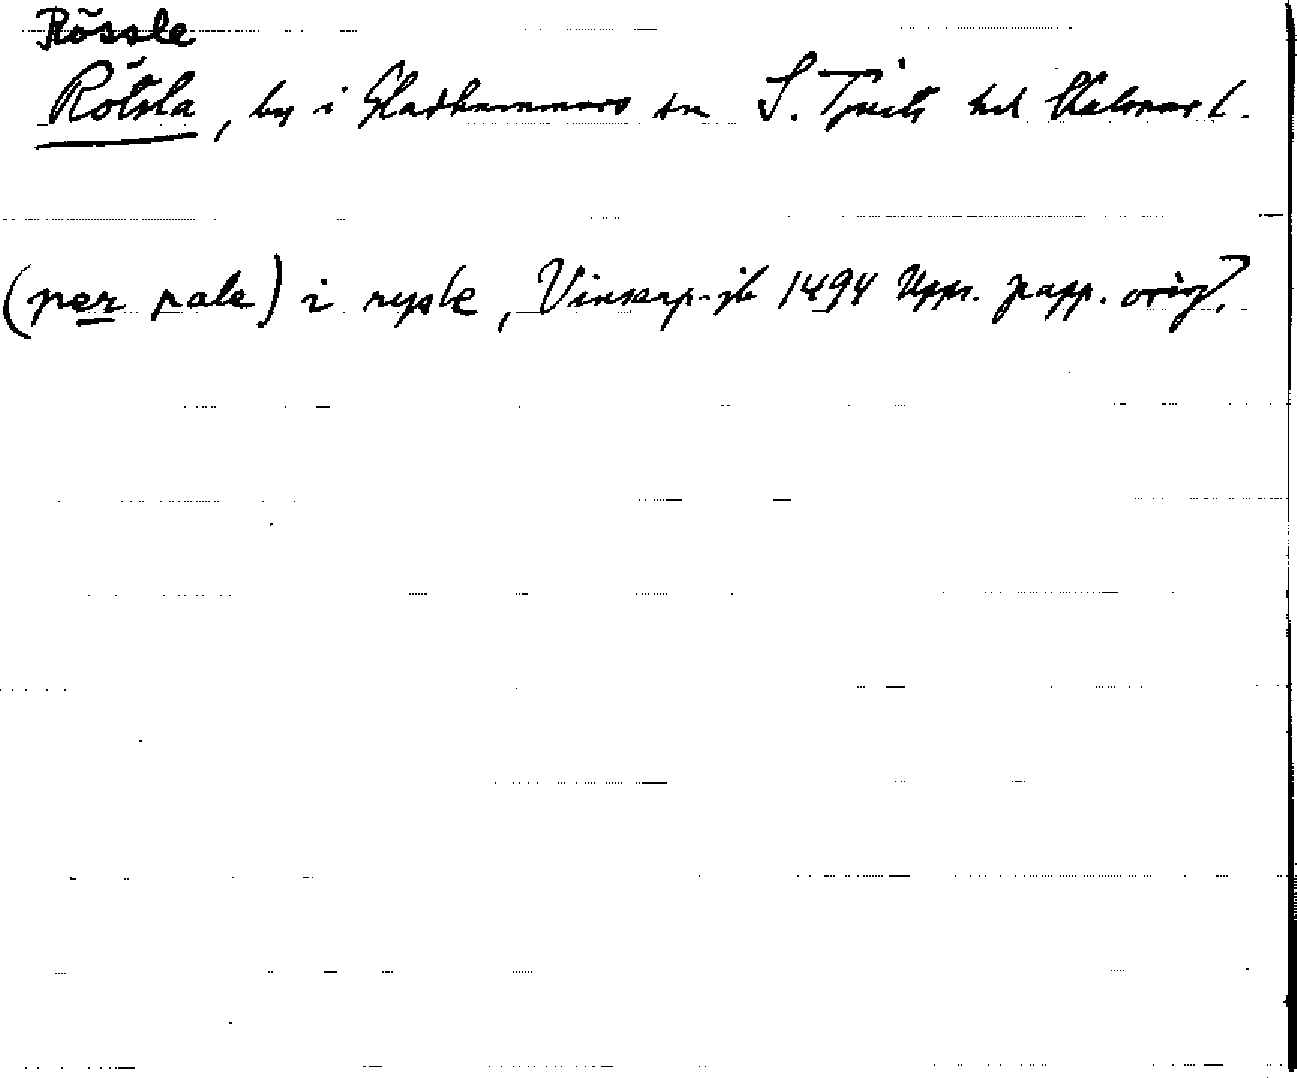 Rössle
Rötsla, by i Gladhammars sn S. Tjust hd Kalmar l.
(per pale) i rysle, Vinsarp-jb 1494 Upps. papp. orig.